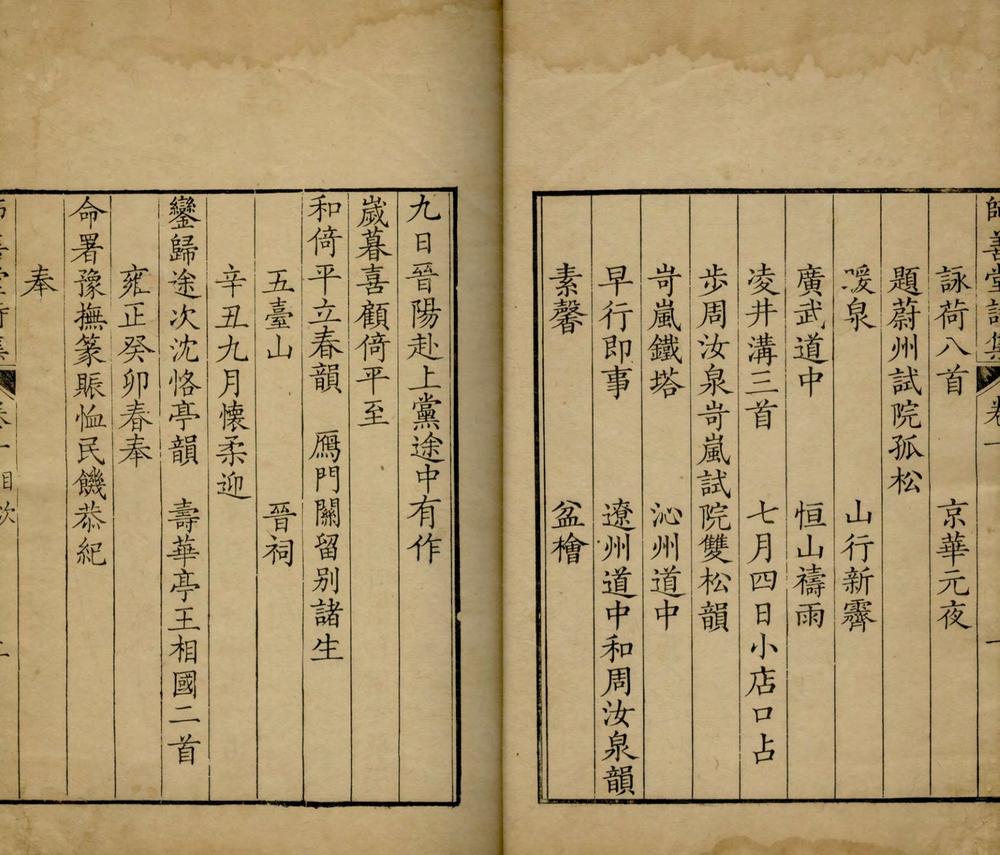 師善堂詩集 卷一 一
詠荷八首 京華元夜
題蔚州試院孤松
喛泉 山行新霽
廣武道中 恒山禱雨
凌井溝三首 七月四日小店口占
步周汝泉岢嵐試院雙松韻
岢嵐鐵塔 沁州道中
早行即事 遼州道中和周汝泉韻
素馨 盆檜
九日晉陽赴上黨途中有作
嵗暮喜顧倚平至
和倚平立春韻 鴈門關留别諸生
五臺山 晉祠
辛丑九月懷柔迎
鑾歸途次沈恪亭韻 壽華亭王相國二首
雍正癸卯春奉
命署豫撫篆賑恤民饑恭紀
奉
師善堂詩集 卷一 目次 二